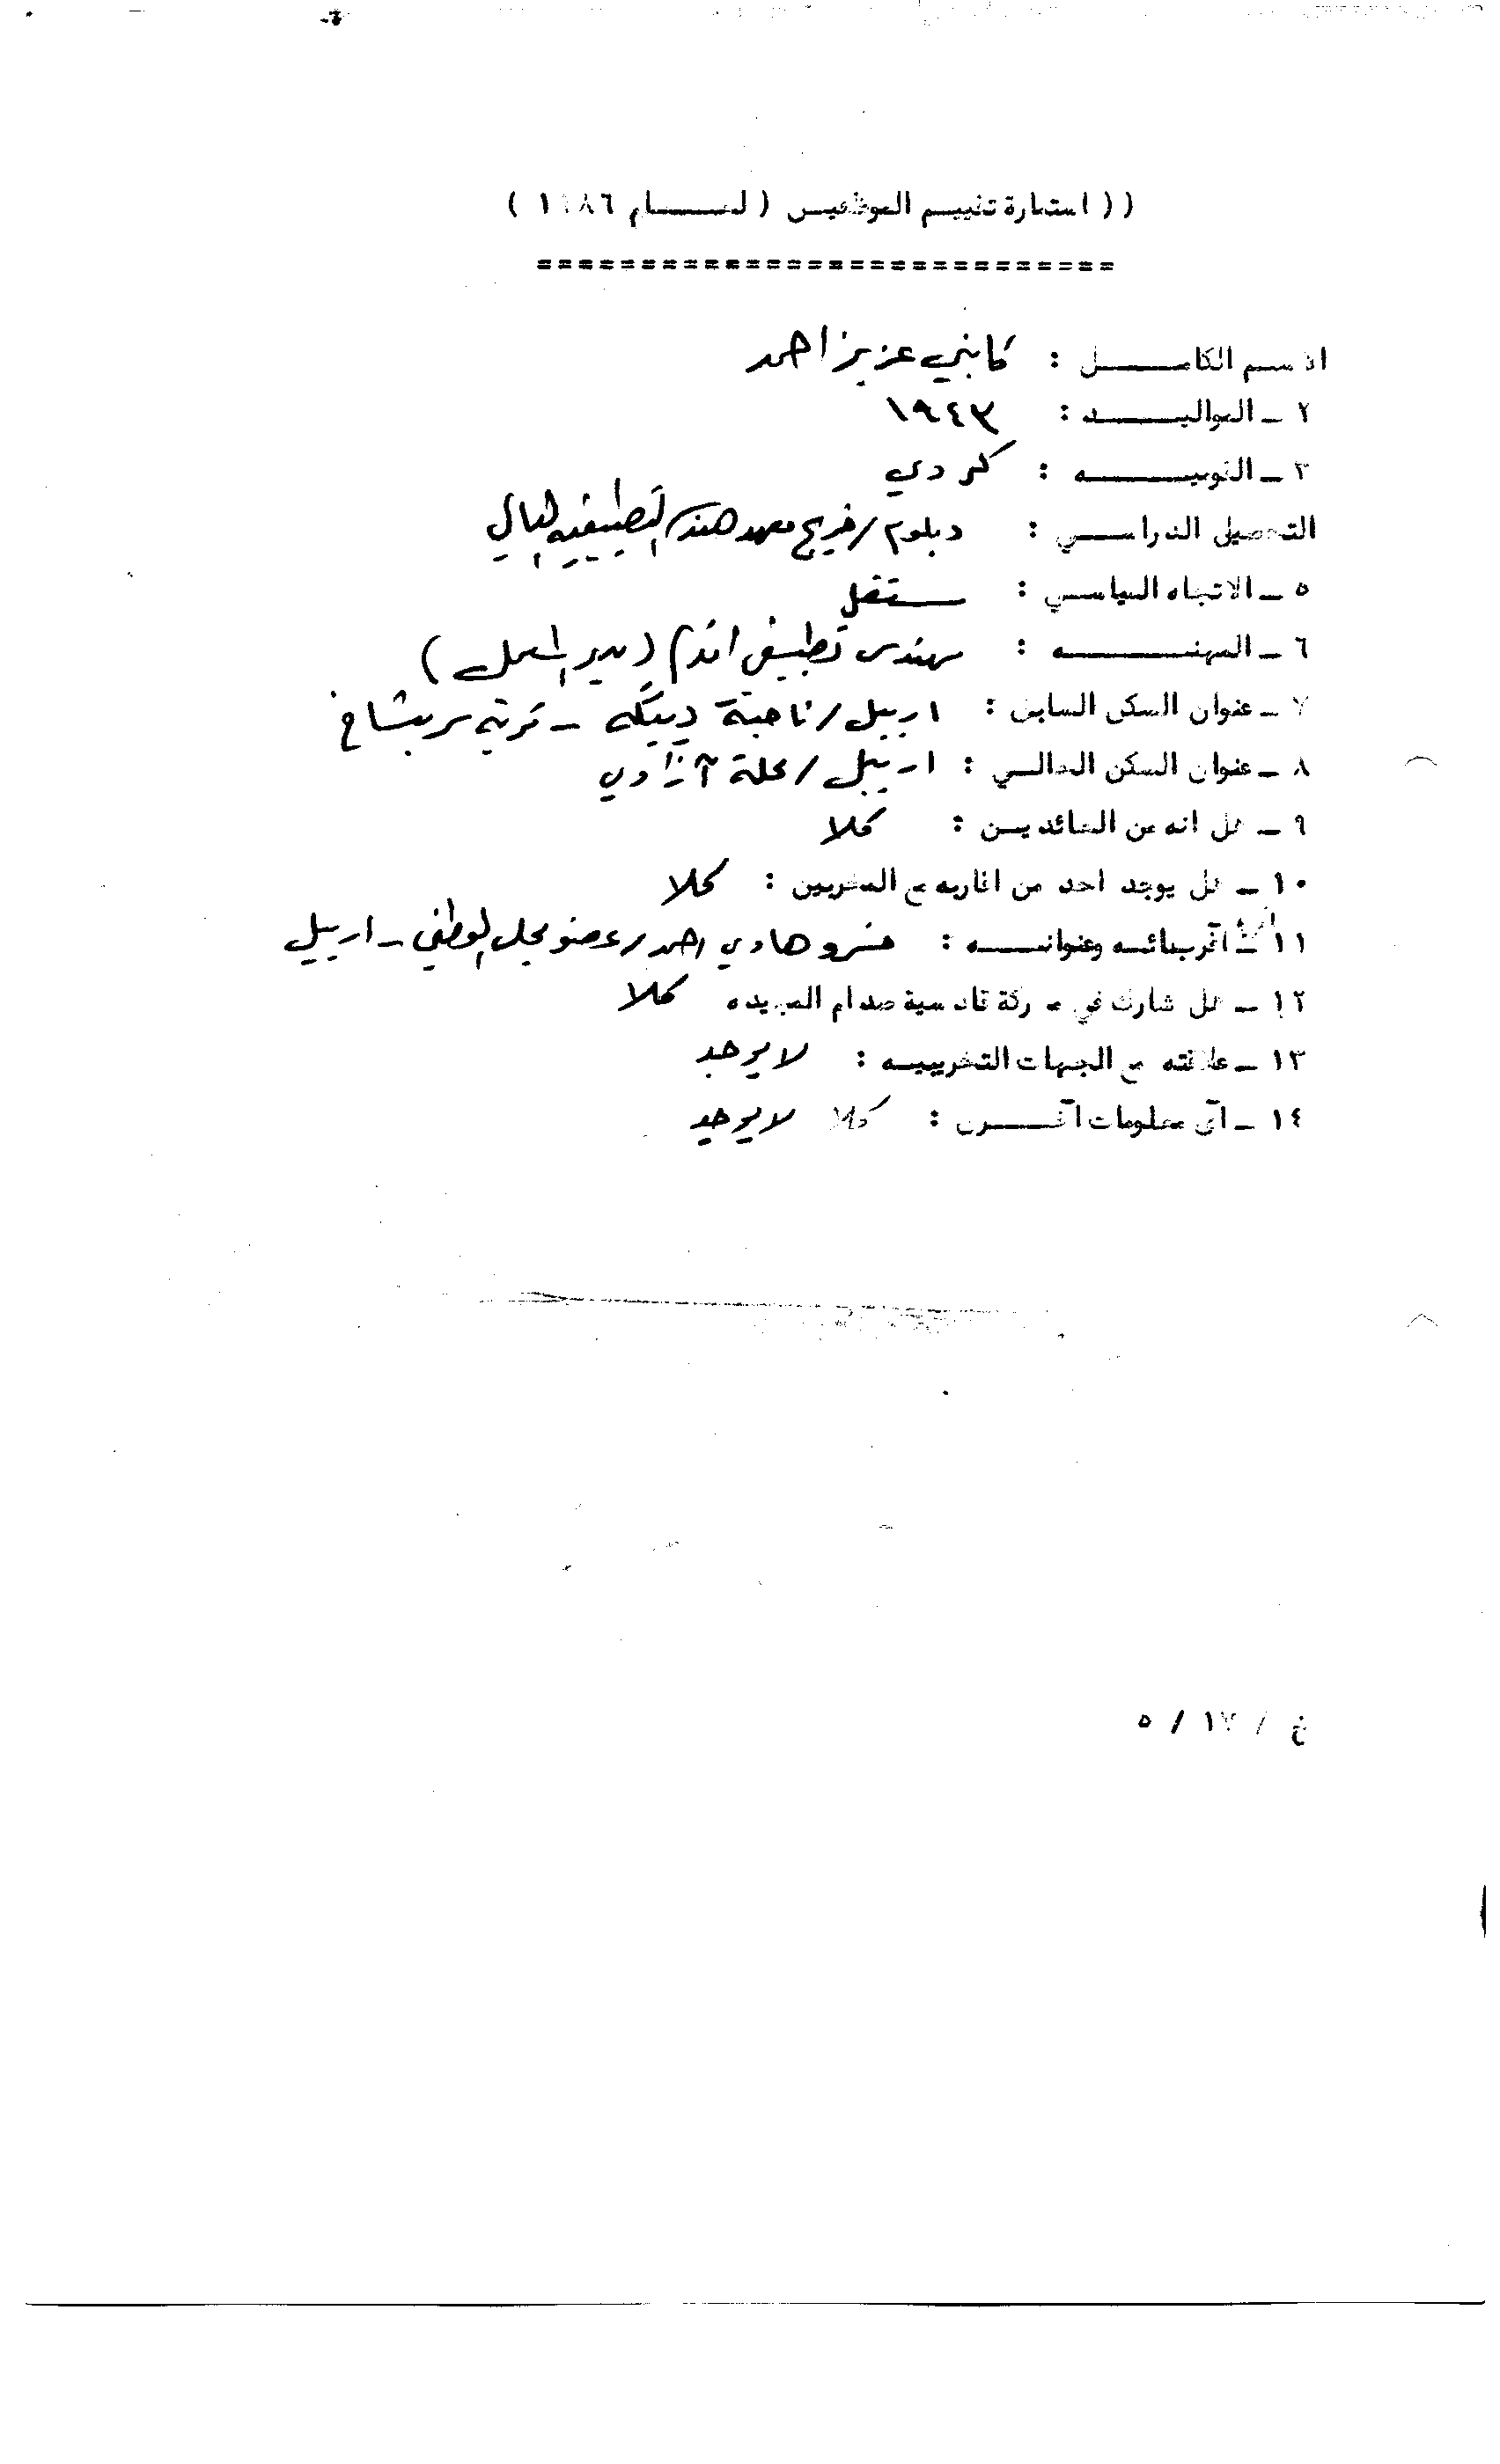 (( استمارة تقييم الموظفين ( لعام ١٩٨٦ )
============================
الاسم الكامل : كابني عزيز احمد
٢ - المواليد : ١٩٤٣
٣ - القوميه : كردي
التحصيل الدراسي : دبلوم / خريج معهد هندسة التطبيقيه العالي
٥ - الاتجاه السياسي : مستقل
٦ - المهنه : مهندس تطبيقي اقدم ( مدير المعمل )
٧ - عنوان السكن السابق : اربيل / ناحية ديبكه - قرية سربشاخ
٨ - عنوان السكن الحالي : اربيل / محلة آزادي
٩ - هل انه من العائديـن : كلا
١٠ - هل يوجد احد من اقاربه مع المخربين : كلا
١١ - اقربائه وعنوانه : خسرو هادي احمد / عضو مجلس الوطني - اربيل
١٢ - هل شارك في معركة قادسية صدام المجيده كلا
١٣ - علاقته مع الجهات التخريبيه : لا يوجد
١٤ - أي معلومات أخرى : كلا لا يوجد
خ / ١٧ / ٥